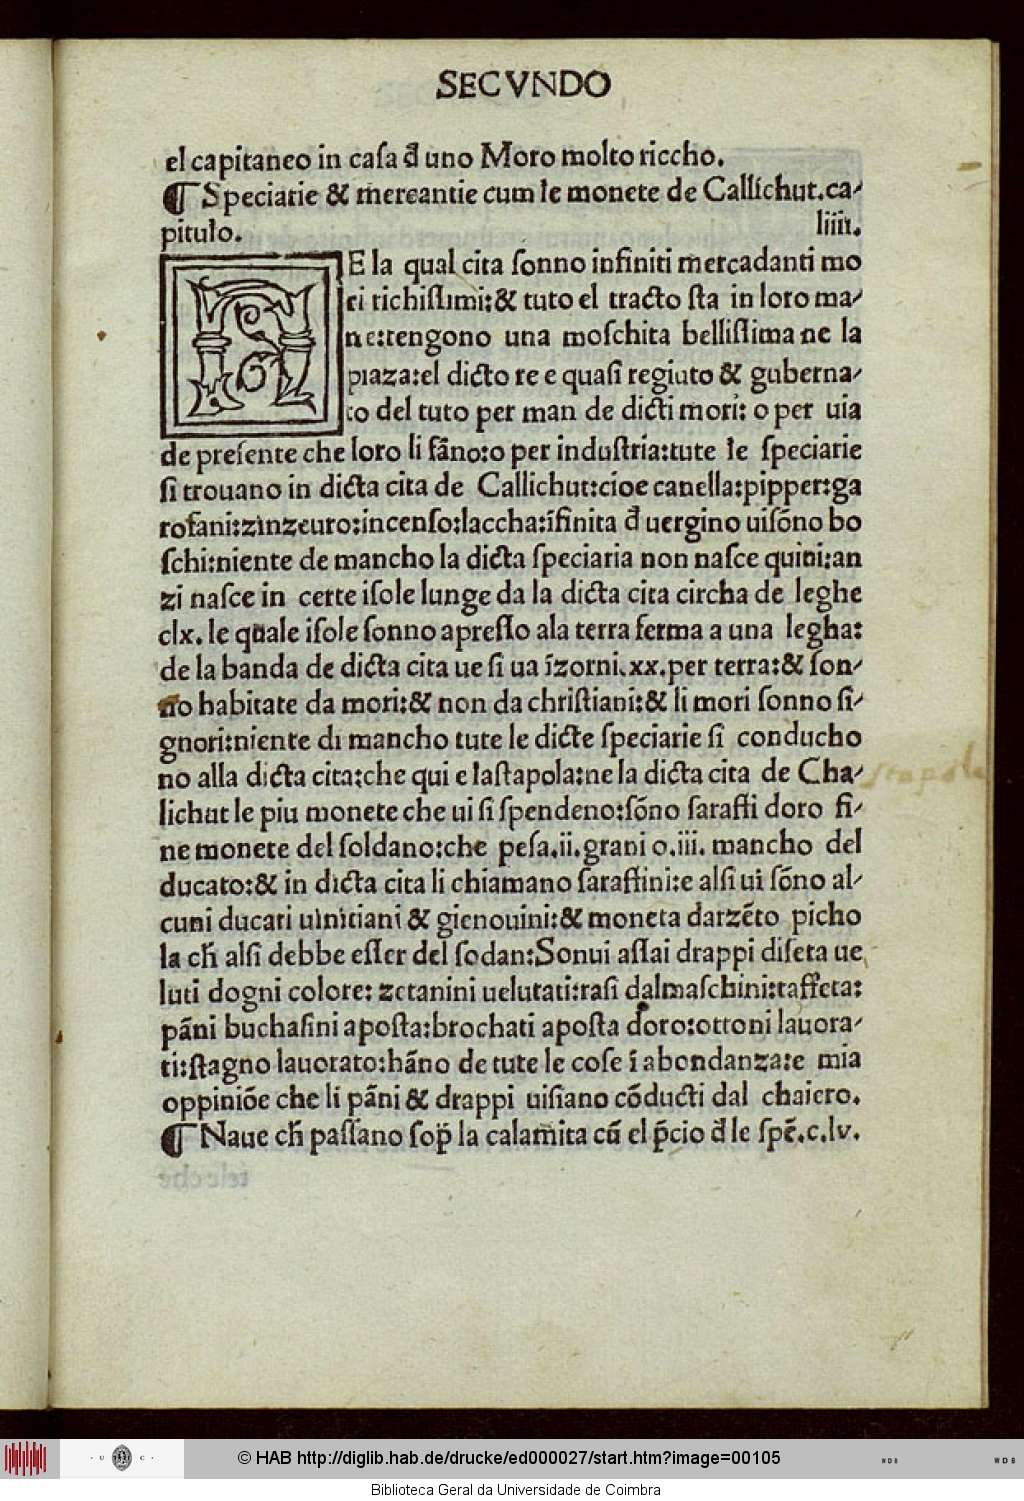 SECVNDO
el capitaneo in casa đ uno Moro molto riccho.
¶ Speciarie & mercantie cum le monete de Callichut.ca-
pitulo. liiii.
NE la qual cita sonno infiniti mercadanti mo
ri richissimi:& tuto el tracto sta in loro ma-
ne:tengono una moschita bellissima ne la
piaza:el dicto re e quasi regiuto & guberna-
to del tuto per man de dicti mori: o per uia
de presente che loro li fãno:o per industria:tute le speciarie
si trouano in dicta cita de Callichut:cioe canella:pipper:ga
rofani:zinzeuro:incenso:laccha:ĩfinita đ uergino uisõno bo
schi:niente de mancho la dicta speciaria non nasce quiui:an
zi nasce in certe isole lunge da la dicta cita circha de leghe
clx. le quale isole sonno apresso ala terra ferma a una legha:
de la banda de dicta cita ue si ua ĩzorni.xx.per terra:& son-
no habitate da mori:& non da christiani:& li mori sonno si-
gnori:niente di mancho tute le dicte speciarie si conducho
no alla dicta cita:che qui e lastapola:ne la dicta cita de Cha-
lichut le piu monete che ui si spendeno:sõno saraffi doro fi-
ne monete del soldano:che pesa.ii.grani o.iii. mancho del
ducato:& in dicta cita li chiamano saraffini:e alsi ui sõno al-
cuni ducati uinitiani & gienouini:& moneta darzẽto picho
la ch̃ alsi debbe esser del sodan:Sonui assai drappi diseta ue
luti dogni colore: zetanini uelutati:rasi dalmaschini:taffeta:
pãni buchasini aposta:brochati aposta doro:ottoni lauora-
ti:stagno lauorato:hãno de tute le cose ĩ abondanza:e mia
oppiniõe che li pãni & drappi uisiano cõducti dal chaiero.
¶ Naue ch̃ passano sop̃ la calamita cũ el p̃cio đ le spẽ.c.lv.
stapola
© HAB http://diglib.hab.de/drucke/ed000027/start.htm?image=00105
· U · C ·
WDB
WDB
Biblioteca Geral da Universidade de Coimbra